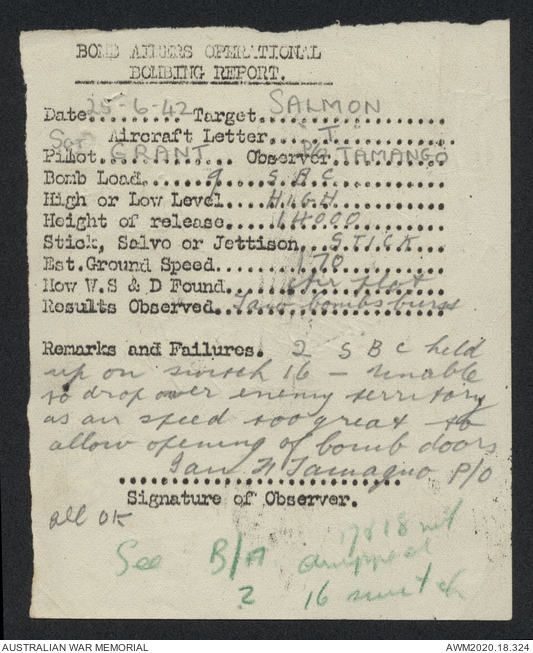 BOMB AIMERS OPERATIONAL
BOMBING REPORT.
Date 25-6-42 Target SALMON
Aircraft Letter I
Pilot Sgt GRANT Observer P/O TAMANGO
Bomb Load 9 S.B.C.
High or Low Level HIGH
Height of release 14000
Stick, Salvo or Jettison STICK
Est.Ground Speed 170
How W.S & D Found Air plot
Results Observed Saw bombs burst
Remarks and Failures. 2 SBC held
up on switch 16 - Unable
to drop over enemy territory
as air speed too great to
allow opening of bomb doors
Ian N Tamagno P/O
Signature of Observer.
all OK
17&18 not
See B/A dropped
2 16 switch
AUSTRALIAN WAR MEMORIAL
AWM2020.18.324